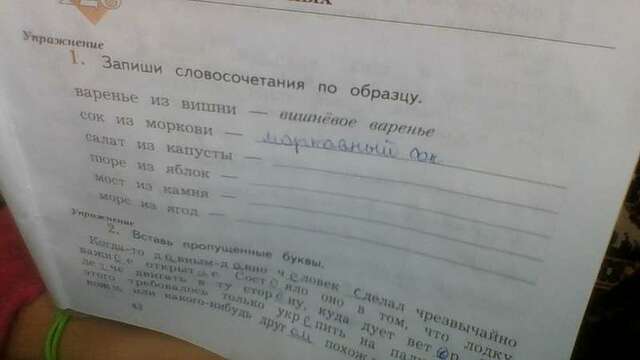 Упражнение
1. Запиши словосочетания по образцу.
варенье из вишни — вишнёвое варенье
сок из моркови — морковный сок
салат из капусты —
пюре из яблок —
мост из камня —
море из ягод —
Упражнение
2. Вставь пропущенные буквы.
Когда-то давным-давно человек сделал чрезвычайно
открытие. Состояло оно в том, что
двигать в ту сторону, куда дует ветер
этого требовалось только укрепить на
или какого-нибудь другой похож